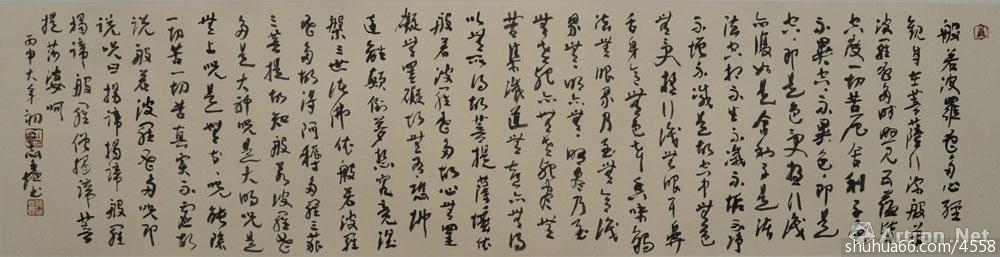 般若波羅蜜多心經
觀自在菩薩行深般若
波羅蜜多時照見五蘊皆
空度一切苦厄舍利子色
不異空空不異色色即是
空空即是色受想行識
亦復如是舍利子是諸
法空相不生不滅不垢不淨
不增不減是故空中無色
無受想行識無眼耳鼻
舌身意無色聲香味觸
法無眼界乃至無意識
界無無明亦無無明盡乃至
無老死亦無老死盡無
苦集滅道無智亦無得
以無所得故菩提薩埵依
般若波羅蜜多故心無罣
礙無罣礙故無有恐怖
遠離顛倒夢想究竟涅
槃三世諸佛依般若波羅
蜜多故得阿耨多羅三藐
三菩提故知般若波羅蜜
多是大神咒是大明咒是
無上咒是無等等咒能除
一切苦真實不虛故
說般若波羅蜜多咒即
說咒曰揭諦揭諦般羅
揭諦般羅僧揭諦菩
提薩婆呵
丙申大年初
shuhua66.com/4558
Artron.Net